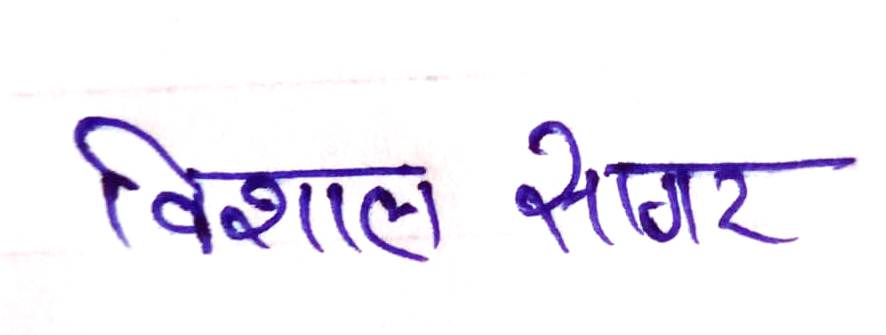 विशाल सागर